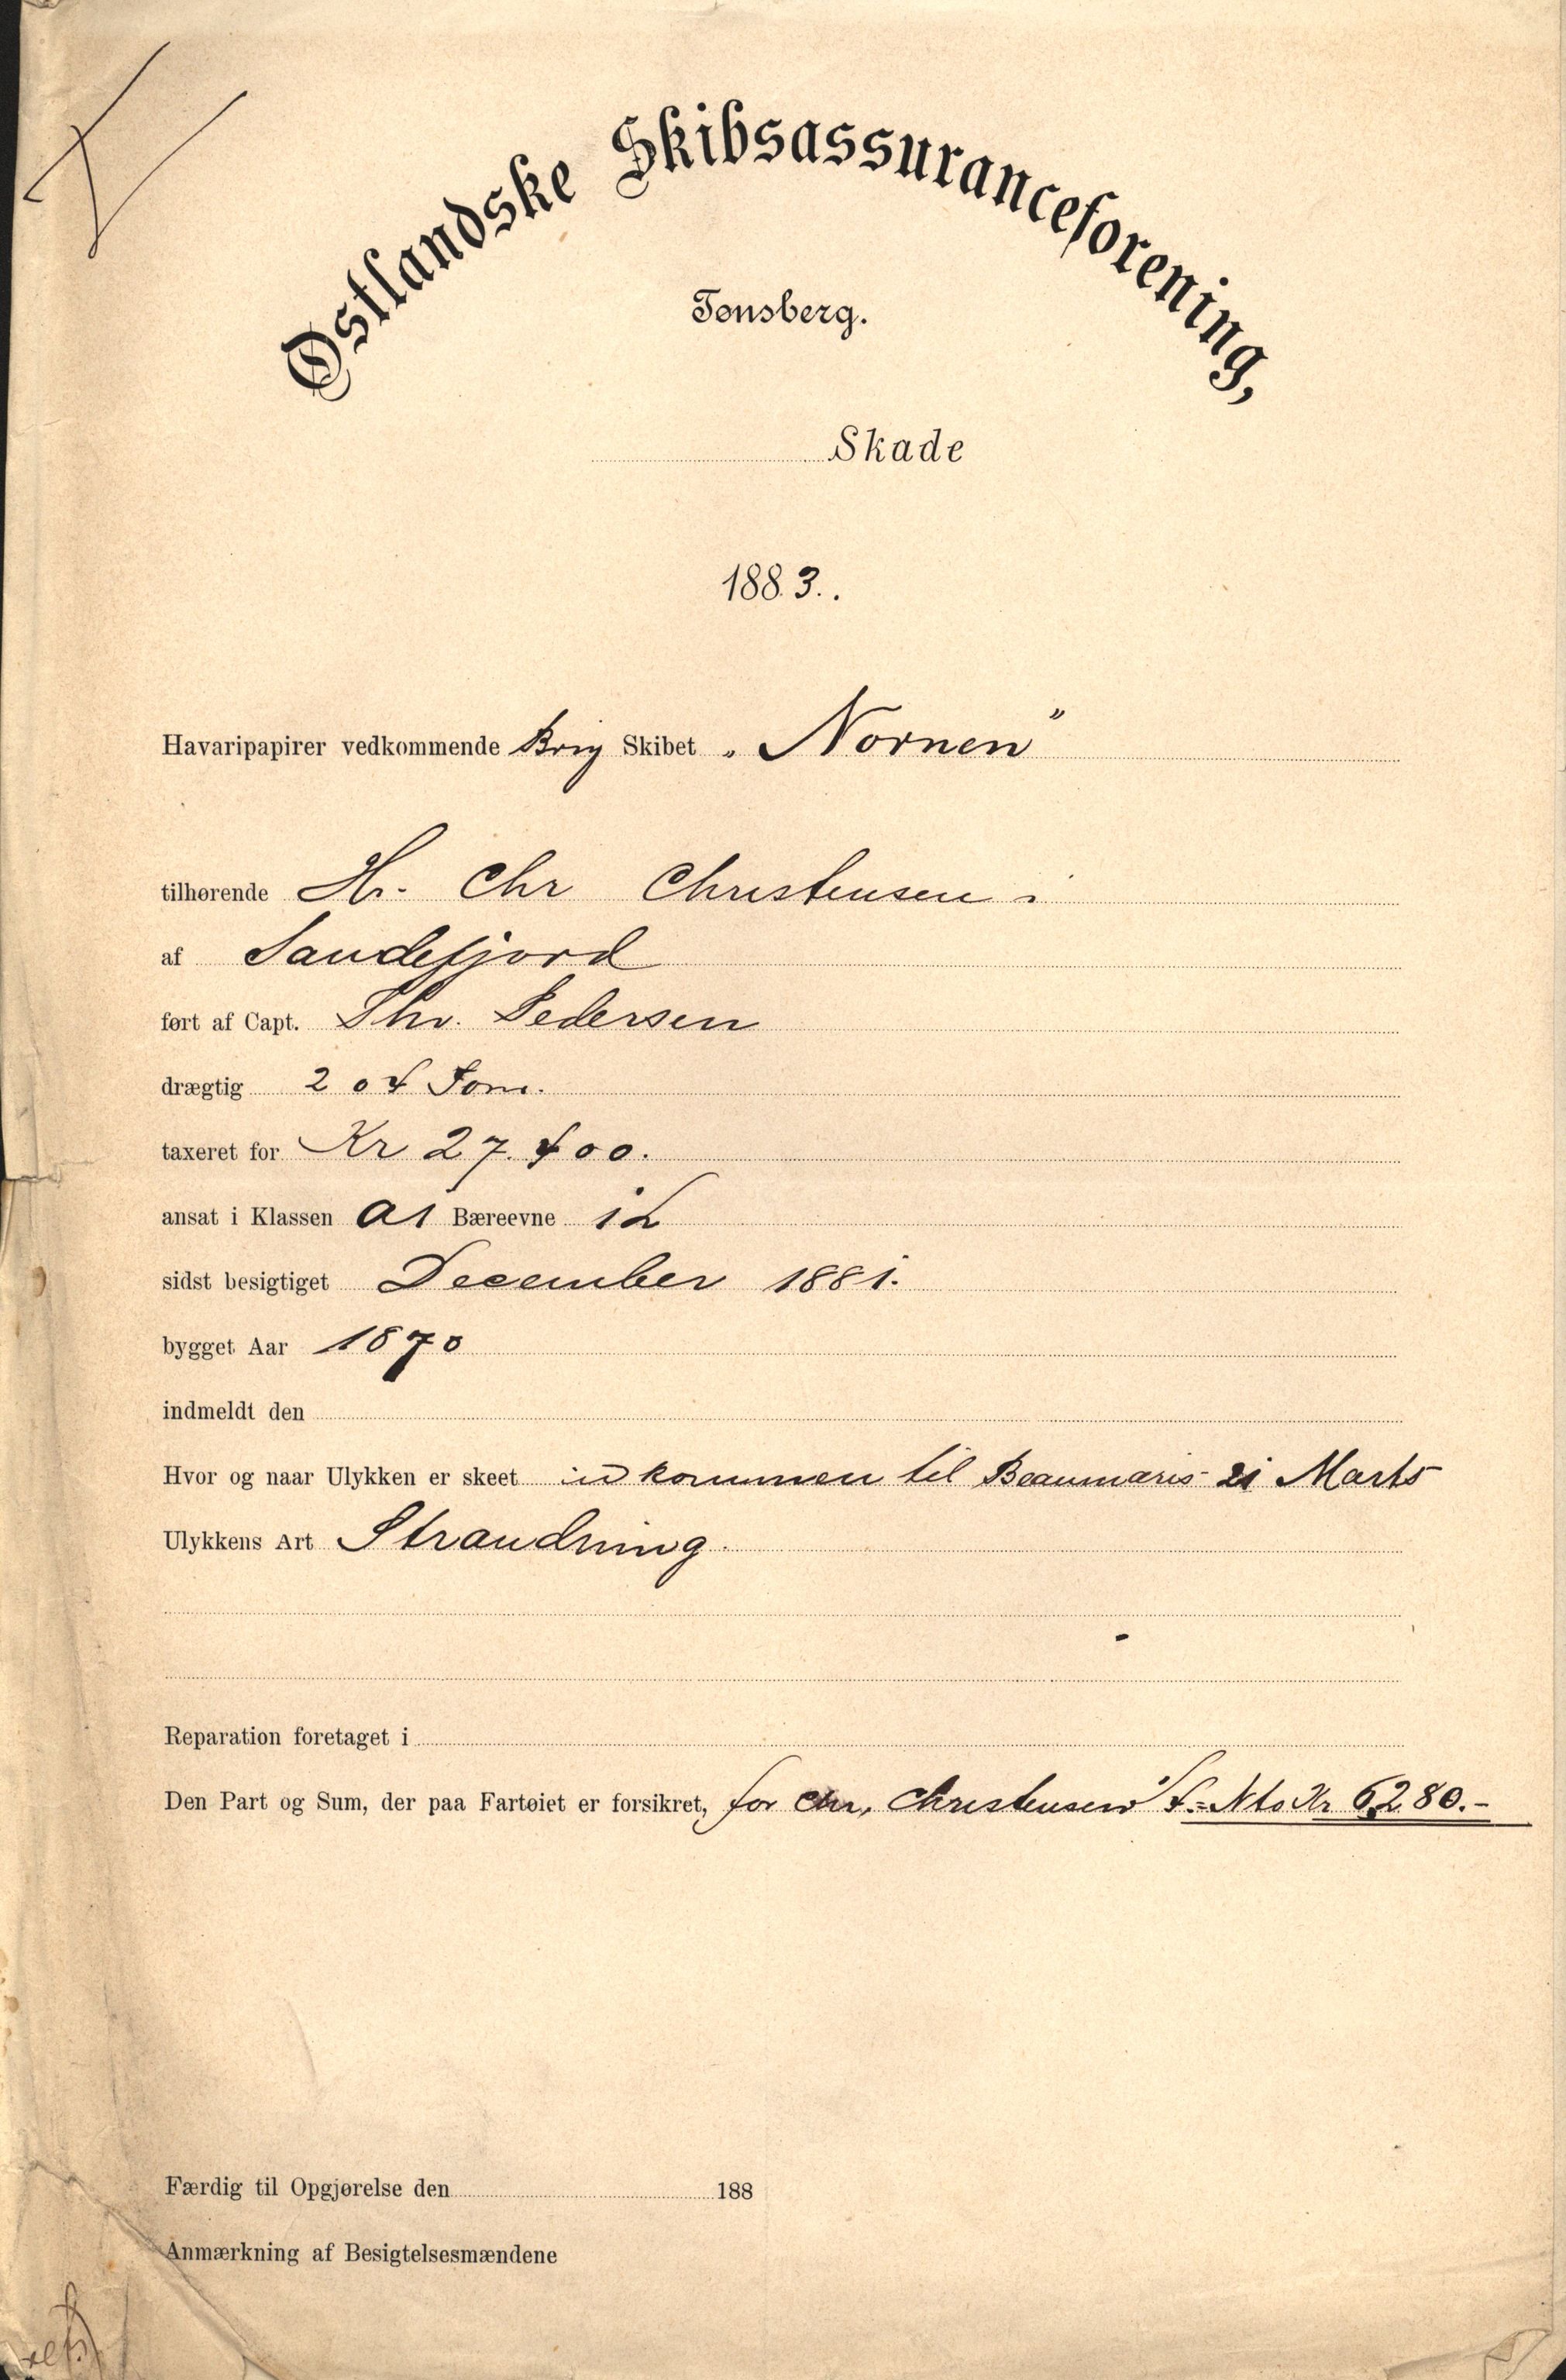 Østlandske Skibsassuranceforening,
Tønsberg.
Skade
1883.
Havaripapirer vedkommende Brig Skibet „Nornen"
tilhørende Hr. Chr Christensen
af Sandefjord
ført af Capt. Thv. Pedersen
drægtig 204 Tons.
taxeret for Kr 27.400.
ansat i Klassen A1 Bæreevne
sidst besigtiget December 1881.
bygget Aar 1870
indmeldt den
Hvor og naar Ulykken er skeet indkommen til Beaumaris 21 Marts
Ulykkens Art Strandning.
Reparation foretaget i
Den Part og Sum, der paa Fartøiet er forsikret, for Chr. Christensen Nto Kr 6280.-
Færdig til Opgjørelse den 188
Anmærkning af Besigtelsesmændene